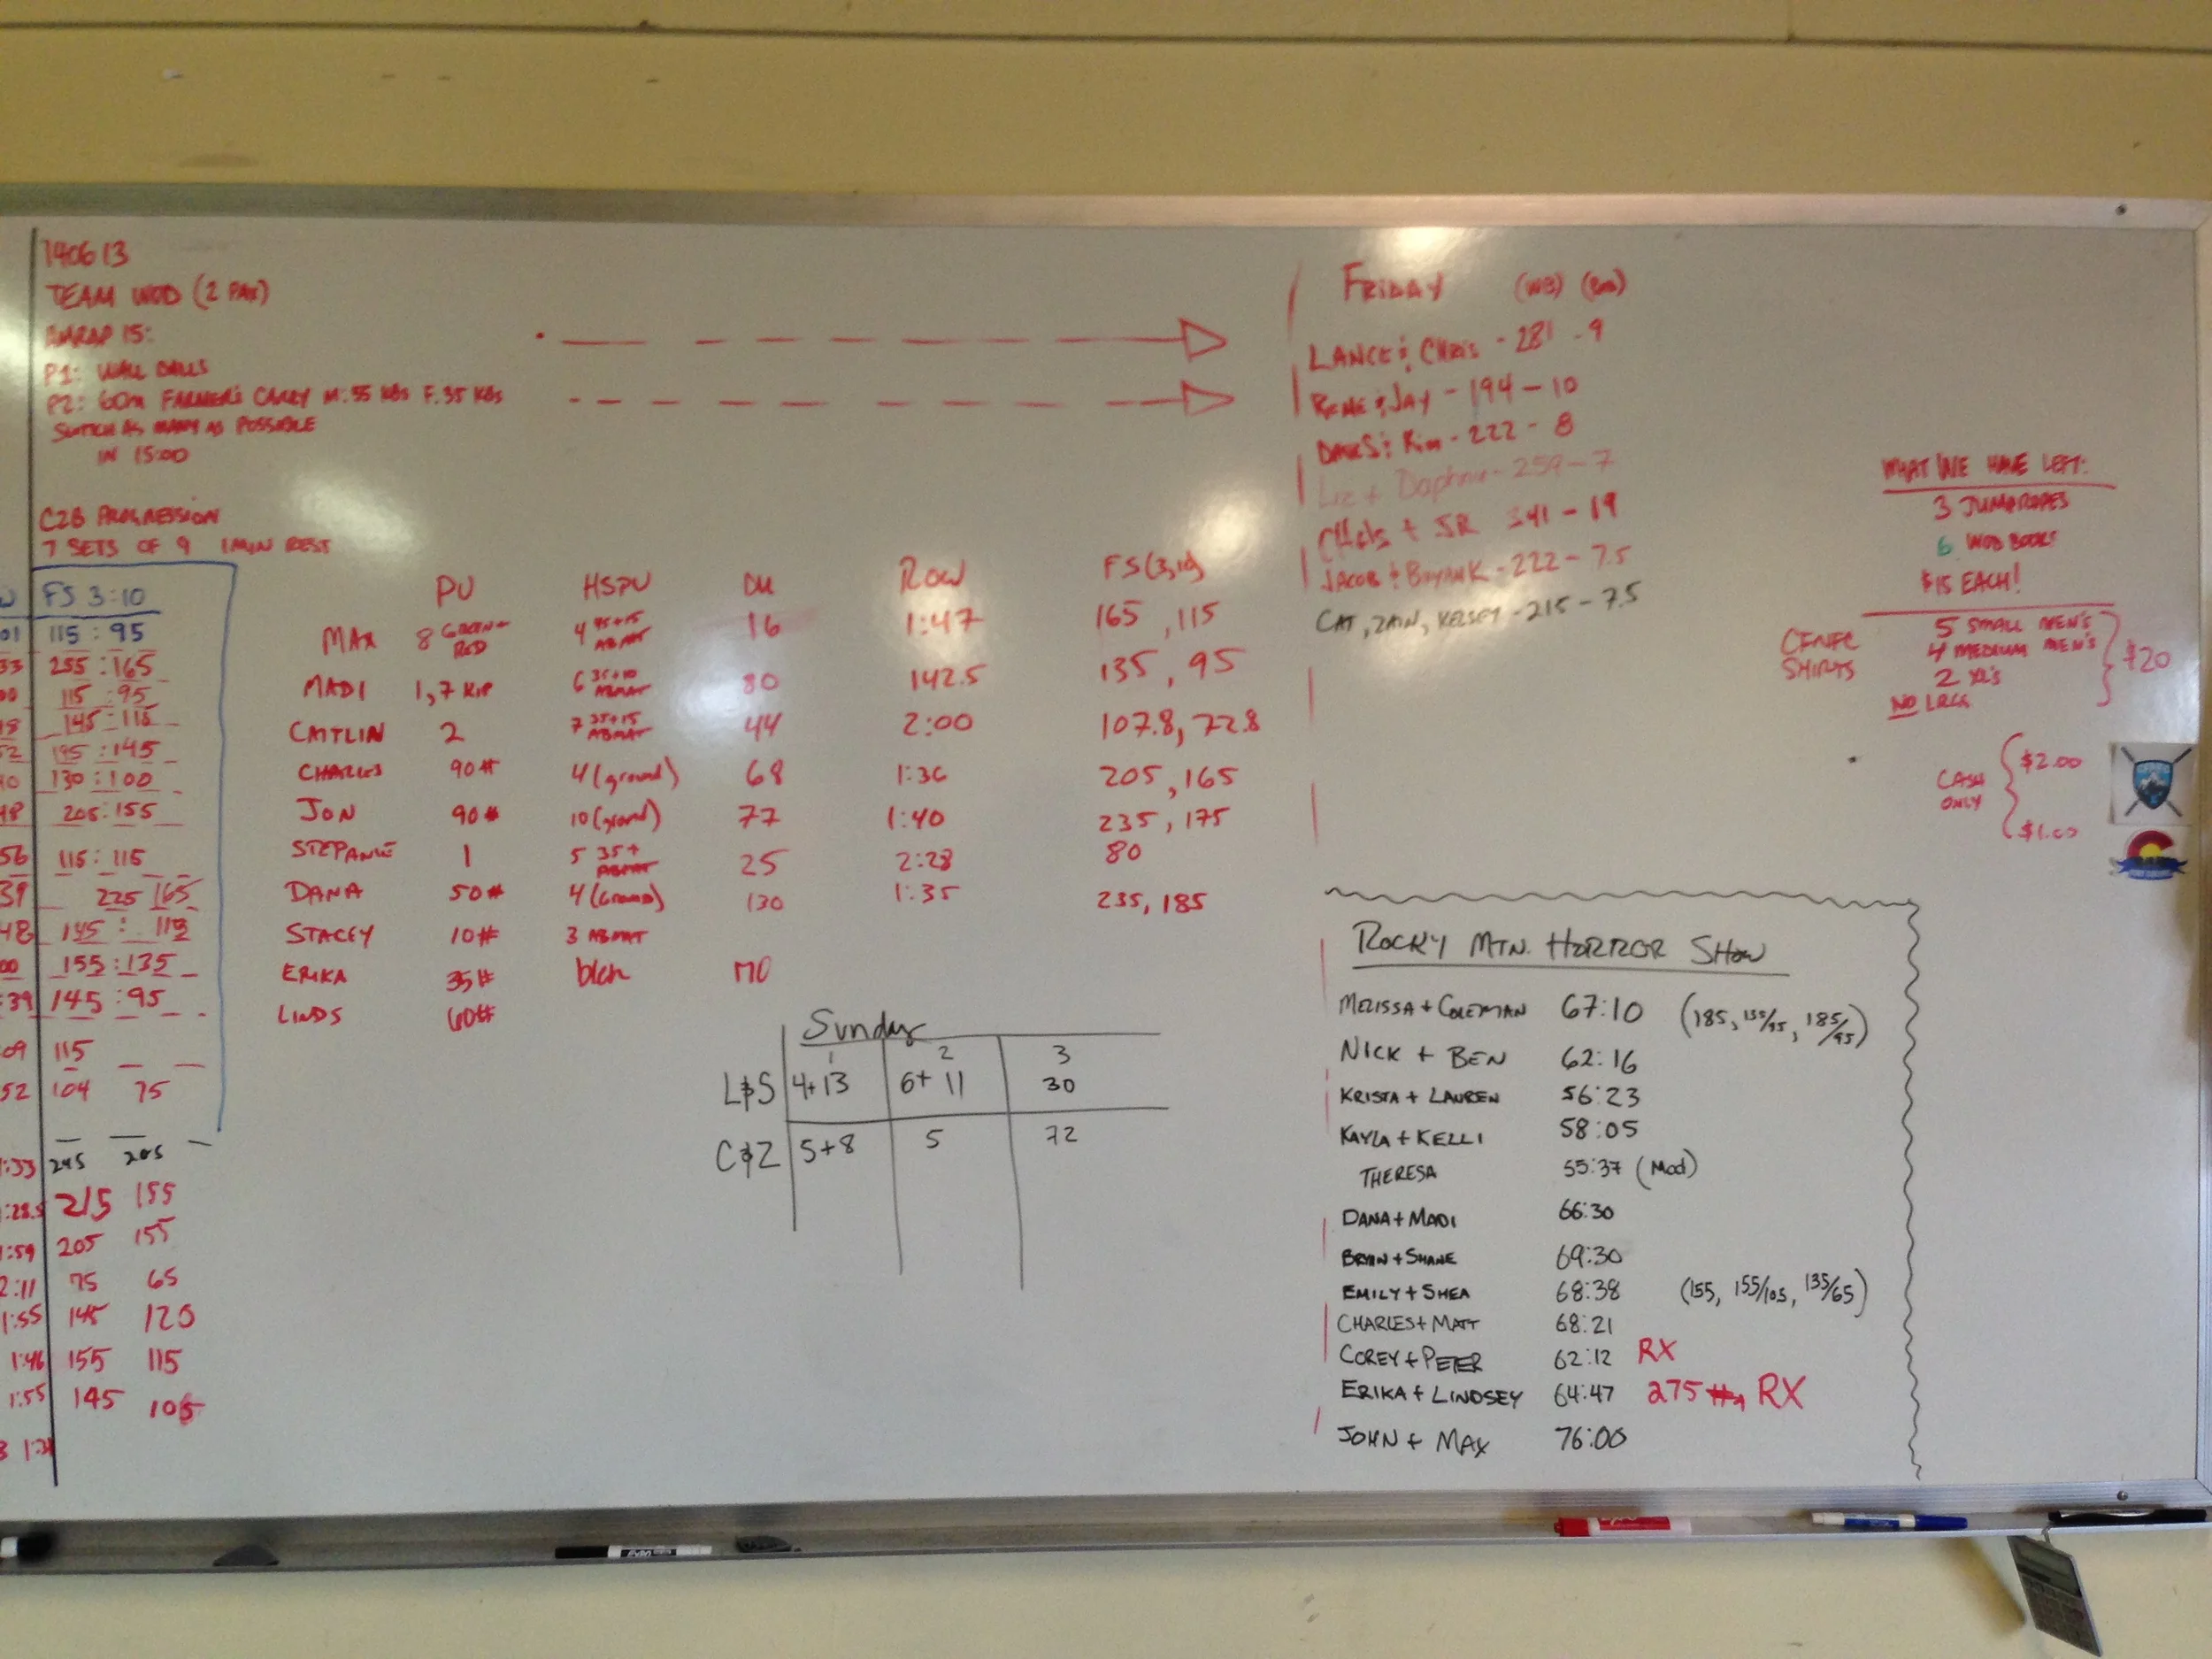 140613
TEAM WOD (2 PAX)
AMRAP 15:
P1: WALL BALLS
P2: 60m FARMER'S CARRY M: 55 KBs F: 35 KBs
SWITCH AS MANY AS POSSIBLE
IN 15:00
C2B PROGRESSION
7 SETS OF 9 1 MIN REST
FS 3:10
01 115 : 95
33 255 : 165
115 : 95
145 : 115
52 195 : 145
130 : 100
48 205 : 155
56 115 : 115
39 225 165
48 145 : 115
00 155 : 135
:39 145 : 95
09 115
52 104 75
:33 245 205
:28.5 215 155
1:59 205 155
2:11 75 65
1:55 145 120
1:46 155 115
1:55 145 105
PU HSPU DU ROW FS (3,10)
MAX 8 GREEN+ RED 4 45+15 ABMAT 16 1:47 165, 115
MADI 1, 7 KIP 6 35+10 ABMAT 80 142.5 135, 95
CAITLIN 2 7 35+15 ABMAT 44 2:00 107.8, 72.8
CHARLES 90# 4 (ground) 68 1:36 205, 165
JON 90# 10 (ground) 77 1:40 235, 175
STEPANIE 1 5 35+ ABMAT 25 2:28 80
DANA 50# 4 (Ground) 130 1:35 235, 185
STACEY 10# 3 ABMAT
ERIKA 35#
LINDS 60#
Sunday
1 2 3
L&S 4+13 6+11 30
C&Z 5+8 5 72
FRIDAY (WB)
LANCE & CHRIS - 281 - 9
RENE & JAY - 194 - 10
& Kim - 222 - 8
Liz + Daphne - 259 - 7
+ JR 341 - 19
JACOB & BRYAN K - 222 - 7.5
CAT, ZAIN, KELSEY - 215 - 7.5
WHAT WE HAVE LEFT:
3 JUMPROPES
6 WOD BOOKS
$15 EACH!
SHIRTS
5 SMALL MEN'S
4 MEDIUM MEN'S
2 XL'S
NO LRGS
$20
CASH ONLY
$2.00
$1.00
ROCKY MTN. HORROR SHOW
MELISSA + COLEMAN 67:10 (185, 135/95, 185/95)
NICK + BEN 62:16
KRISTA + LAUREN 56:23
KAYLA + KELLI 58:05
THERESA 55:37 (Mod)
DANA + MADI 66:30
BRYAN + SHANE 69:30
EMILY + SHEA 68:38 (155, 155/105, 135/65)
CHARLES + MATT 68:21
COREY + PETER 62:12 RX
ERIKA + LINDSEY 64:47 275 #, RX
JOHN + MAX 76:00
EXPO